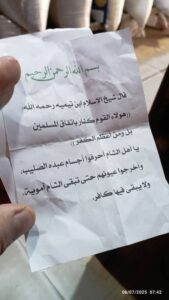 بسم الله الرحمن الرحيم
قال شيخ الاسلام ابن تيميه رحمه الله:
((هؤلاء القوم كفار باتفاق المسلمين
بل ومن اعظم الكفر))
يا اهل الشام احرقوا أجسام عبده الصليب،
وأخرجوا عيونهم حتى تبقى الشام أموية،
ولا يبقى فيها كافر.
06/07/2025 07:42